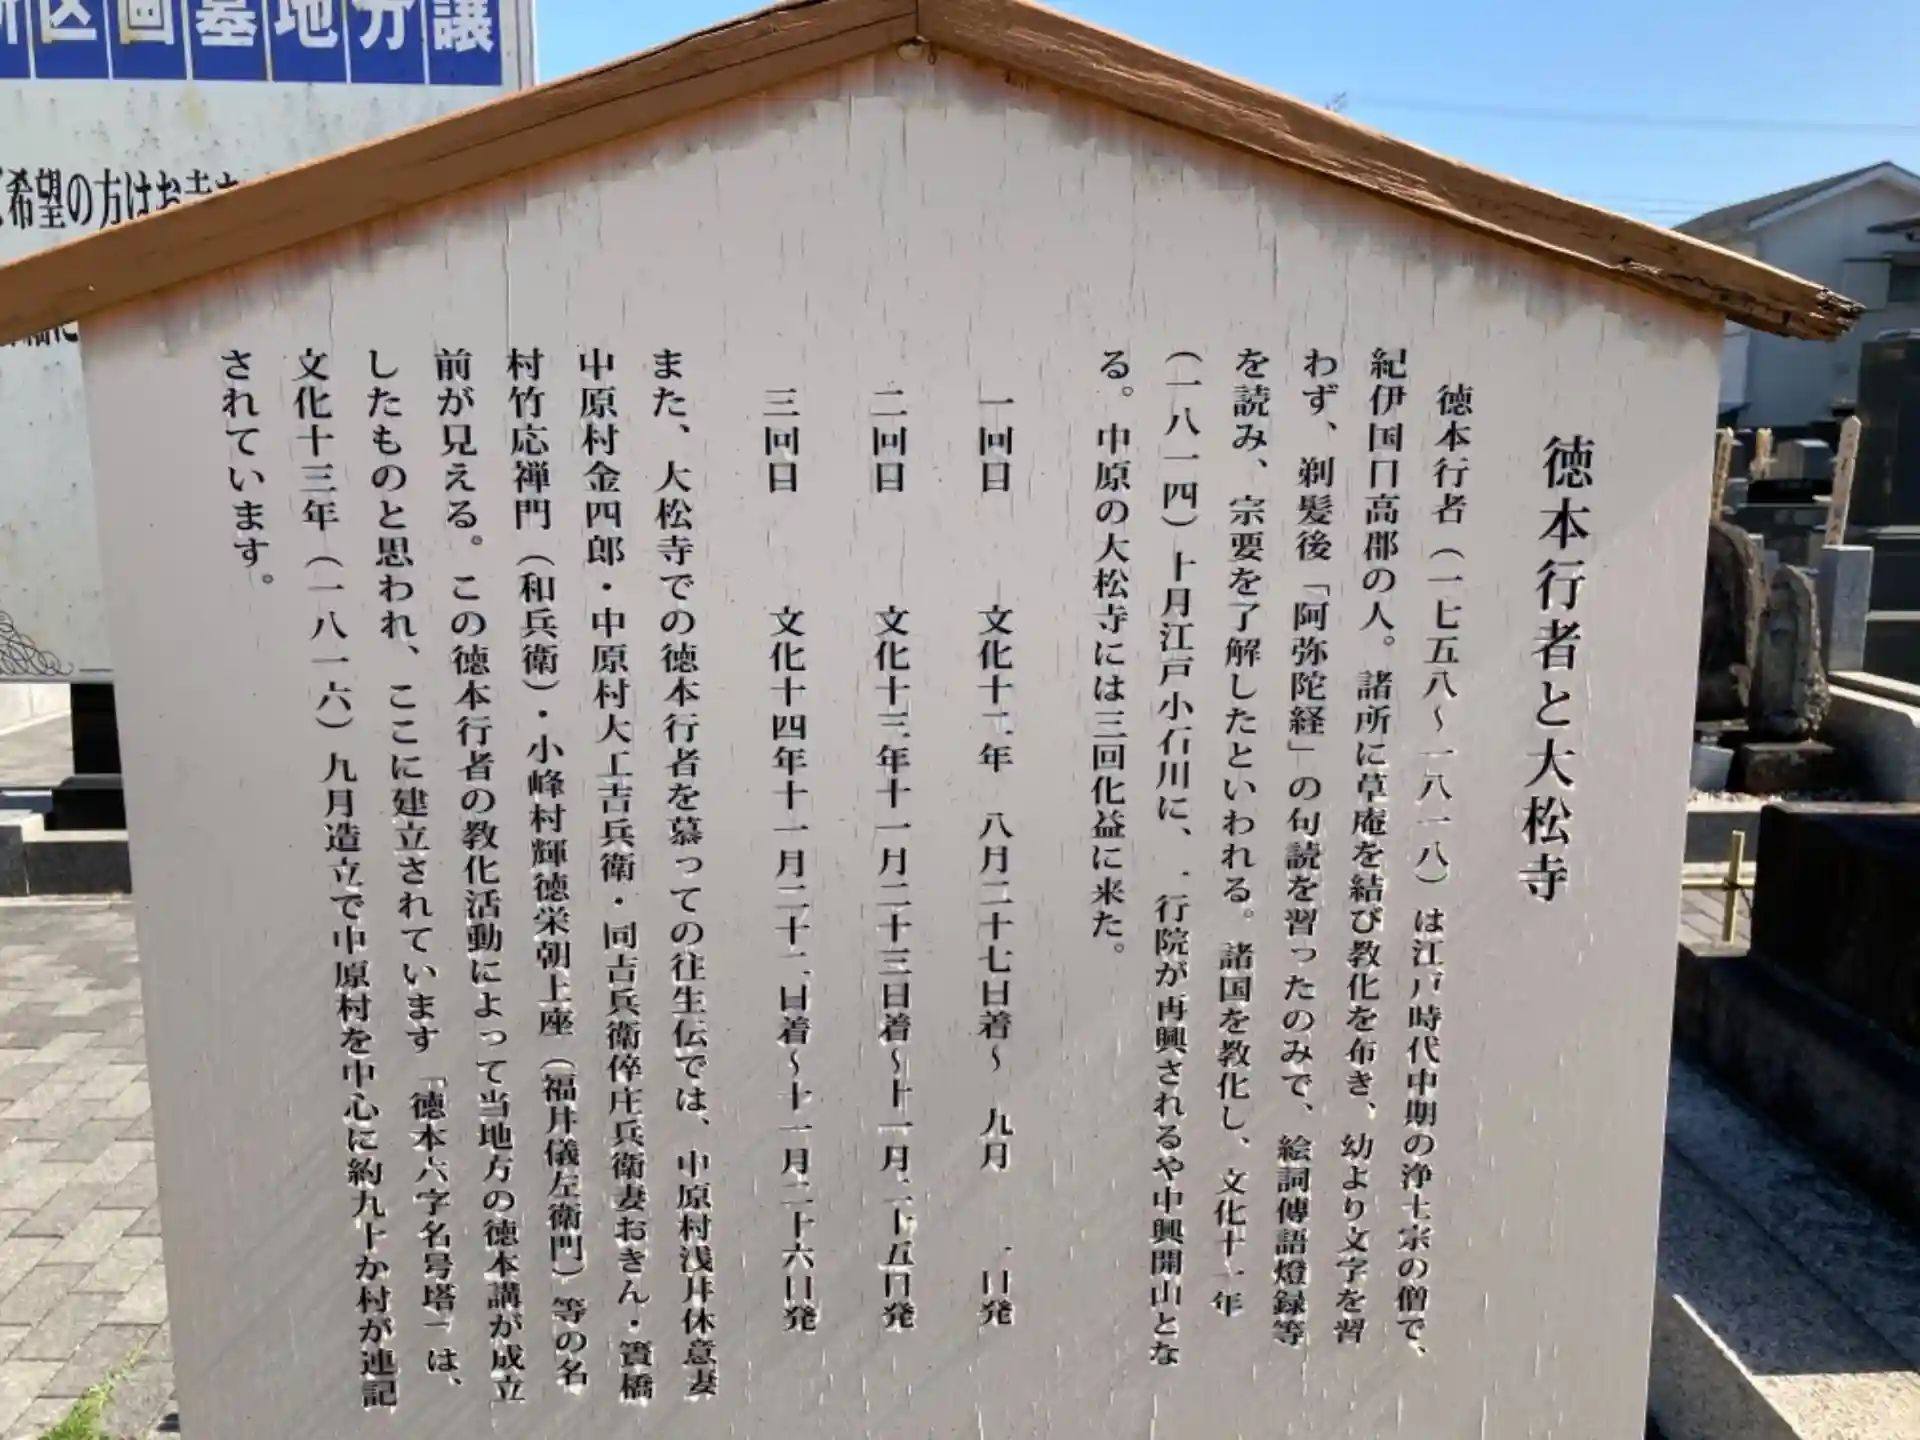 徳本行者と大松寺
徳本行者（一七五八～一八一八）は江戸時代中期の浄土宗の僧で、
紀伊国日高郡の人。諸所に草庵を結び教化を布き、幼より文字を習
わず、剃髪後「阿弥陀経」の句読を習ったのみで、絵詞傳語燈録等
を読み、宗要を了解したといわれる。諸国を教化し、文化十一年
（一八一四）十月江戸小石川に、一行院が再興されるや中興開山とな
る。中原の大松寺には三回化益に来た。
一回目 文化十二年 八月二十七日着～ 九月 一日発
二回目 文化十三年十一月二十三日着～十一月二十五日発
三回目 文化十四年十一月二十二日着～十一月二十六日発
また、大松寺での徳本行者を慕っての往生伝では、中原村浅井休意妻
中原村金四郎・中原村大工吉兵衛・同吉兵衛倅庄兵衛妻おきん・簀橋
村竹応禅門（和兵衛）・小峰村輝徳栄朝上座（福井儀左衛門）等の名
前が見える。この徳本行者の教化活動によって当地方の徳本講が成立
したものと思われ、ここに建立されています「徳本六字名号塔」は、
文化十三年（一八一六）九月造立で中原村を中心に約九十か村が連記
されています。
区画墓地分譲
希望の方はお寺